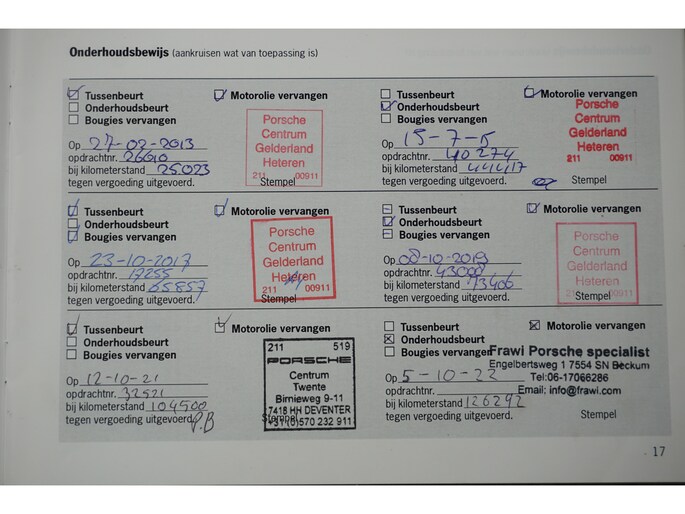 Onderhoudsbewijs (aankruisen wat van toepassing is)
Tussenbeurt Motorolie vervangen
Onderhoudsbeurt
Bougies vervangen
Op 27-02-2013
opdrachtnr. 26610
bij kilometerstand 25.023
tegen vergoeding uitgevoerd. Stempel
Porsche
Centrum
Gelderland
Heteren
211 00911
Tussenbeurt Motorolie vervangen
Onderhoudsbeurt
Bougies vervangen
Op 15-7-15
opdrachtnr. 40274
bij kilometerstand 44417
tegen vergoeding uitgevoerd. Stempel
Porsche
Centrum
Gelderland
Heteren
211 00911
Tussenbeurt Motorolie vervangen
Onderhoudsbeurt
Bougies vervangen
Op 23-10-2017
opdrachtnr. 17255
bij kilometerstand 65857
tegen vergoeding uitgevoerd. Stempel
Porsche
Centrum
Gelderland
Heteren
211 00911
Tussenbeurt Motorolie vervangen
Onderhoudsbeurt
Bougies vervangen
Op 08-10-2019
opdrachtnr. 43000
bij kilometerstand 73406
tegen vergoeding uitgevoerd. Stempel
Porsche
Centrum
Gelderland
Heteren
211 00911
Tussenbeurt Motorolie vervangen
Onderhoudsbeurt
Bougies vervangen
Op 12-10-21
opdrachtnr. 32521
bij kilometerstand 104500
tegen vergoeding uitgevoerd. P.B Stempel
211 519
PORSCHE
Centrum
Twente
Birnieweg 9-11
7418 HH DEVENTER
+31(0)570 232 911
Tussenbeurt Motorolie vervangen
Onderhoudsbeurt
Bougies vervangen
Op 5-10-22
opdrachtnr.
bij kilometerstand 126292
tegen vergoeding uitgevoerd. Stempel
Frawi Porsche specialist
Engelbertsweg 1 7554 SN Beckum
Tel:06-17066286
Email: info@frawi.com
17